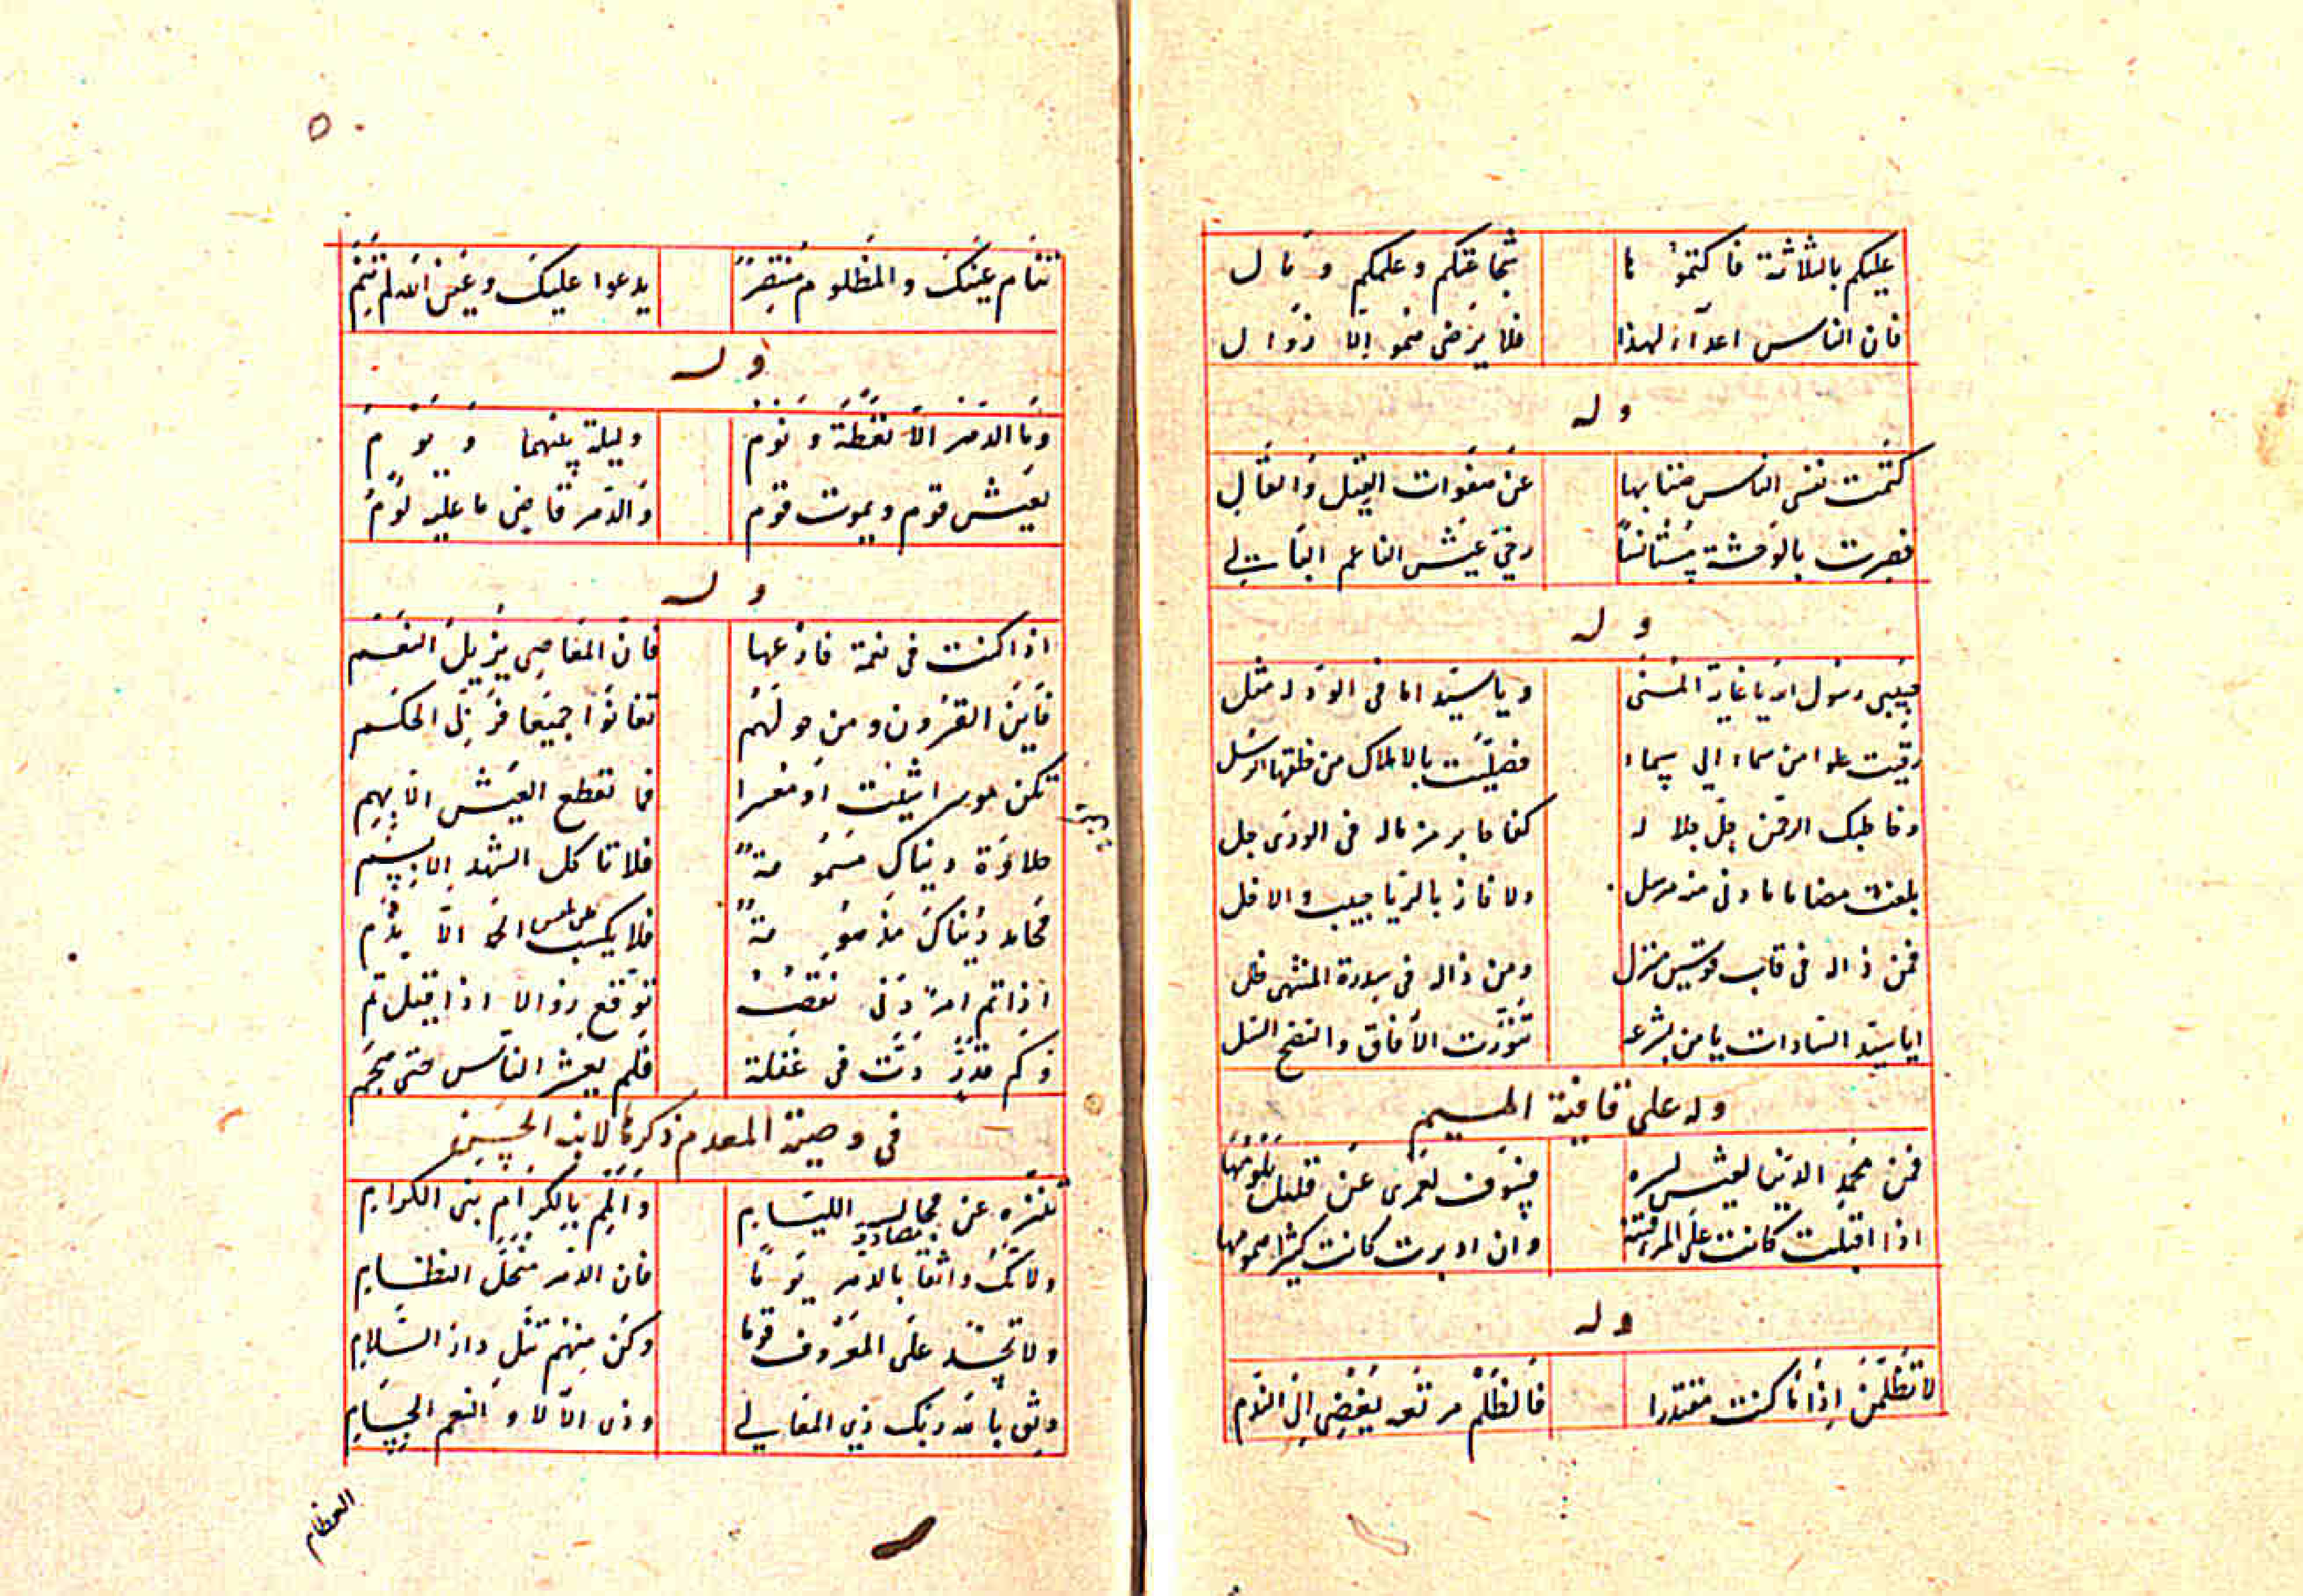 عليكم بالثلاثة فاكتموها شجاعتكم وعلمكم ومال
فان الناس اعدآء لهذا فلا يرضى سمو الا زوال
وله
كتمت نفس الناس منتابها عن هفوات القيل والقال
فصرت بالوحشة مستانسا وفي عيش الناعم البالي
وله
حبيبي رسول الله يا غاية المنى ويا سيدا ما في الورى له مثل
رقيت علوا من سماء الي سماء فضليت بالاملاك من خلفها الرسل
وخاطبك الرحمن جل جلاله كفاحا
بلغت مقاما ما دنى منه مرسل ولا فاز بالرؤيا حبيب ولا خل
فمن ذا له في قاب قوسين منزل ومن ذا له في سدرة المنتهى ظل
ايا سيد السادات يا من بشرعه تنورت الآفاق واتضح السبل
وله على قافية الميم
فمن يحمد الدنيا لعيش يسره فسوف لعمرى عن قليل يلومها
اذا اقبلت كانت على المرء فتنة وان ادبرت كانت كثيرا همومها
وله
لا تظلمن اذا ما كنت مقتدرا فالظلم مرتعه يفضى الى الندم
٥٠
تنام عينك والمظلوم منتصر يدعوا عليك وعين الله لم تنم
وله
وما الدهر الا يقظة ونوم وليلة بينهما ويوم
يعيش قوم ويموت قوم والدهر قاض ما عليه لوم
وله
اذا كنت في نعمة فارعها فان المعاصي يزيل النعم
فاين القرون ومن حولهم تفانوا جميعا
تكن موسرا شئت او معسرا فما تقطع العيش الا بهم
حلاوة دنياك مسمومة فلا تاكل الشهد الا بسم
محامد دنياك مذمومة فلا يكسب الحمد الا بذم
اذا تم امر دنى نقصه توقع زوالا اذا قيل تم
وكم قدر دبت في غفلة فلم يشعر الناس حتى هجم
في وصيته المعدم ذكرها لابنه الحسين
تنزه عن مجالسة اللئام والمم بالكرام بنى الكرام
مصادقة
ولا تك واثقا بالدهر يوما فان الدهر منحل النظام
ولا تحسد على المعروف قوما وكن منهم تنل دار السلام
وثق بالله ربك ذي المعالي وذى الآلاء والنعم الجسام
العظام